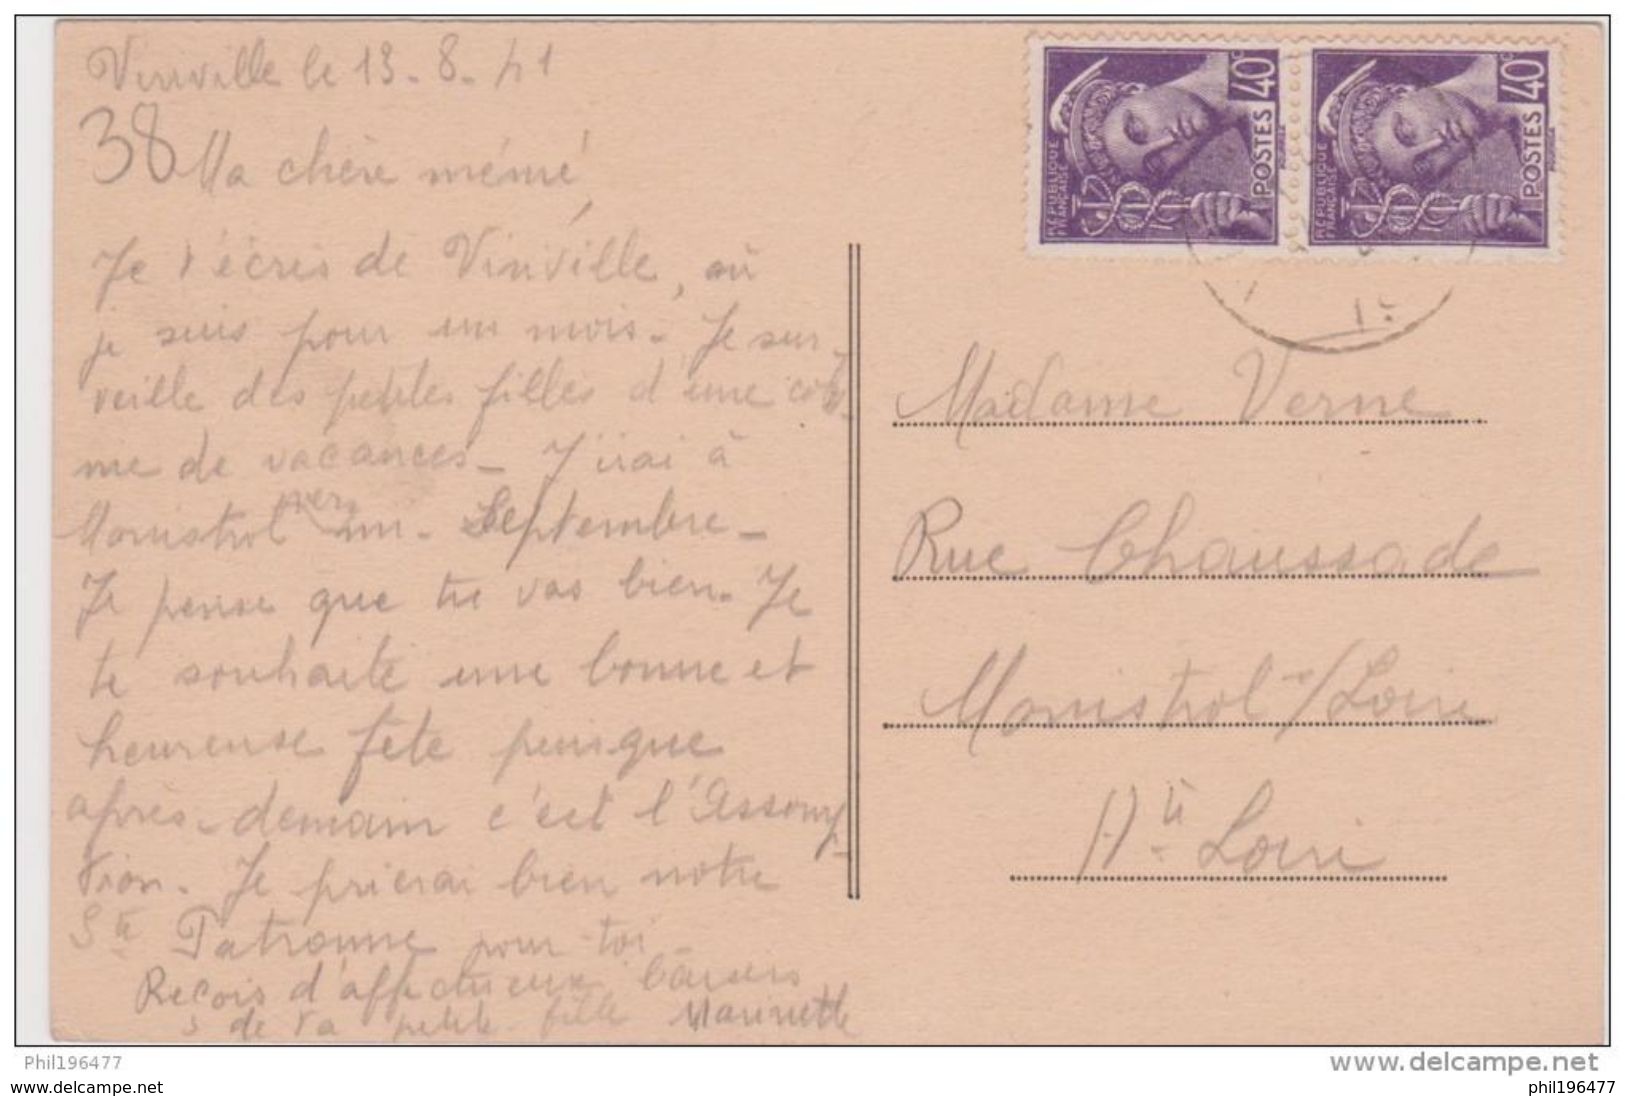 Viriville le 13-8-41
38 Ma chère mémé,
Je t'écris de Viriville, où
je suis pour un mois. Je sur-
veille des petites filles d'une colo-
nie de vacances. J'irai à
Monistrol vers Septembre.
Je pense que tu vas bien. Je
te souhaite une bonne et
heureuse fête puisque
après-demain c'est l'Assomp-
tion. Je prierai bien notre
Ste Patronne pour toi.
Reçois d'affectueux baisers
de ta petite fille Marinette
REPUBLIQUE
FRANÇAISE
POSTES
40c
REPUBLIQUE
FRANÇAISE
POSTES
40c
Madame Verne
Rue Chaussade
Monistrol s/Loire
Hte Loire
Phil196477
www.delcampe.net
delcampe.net
phil196477